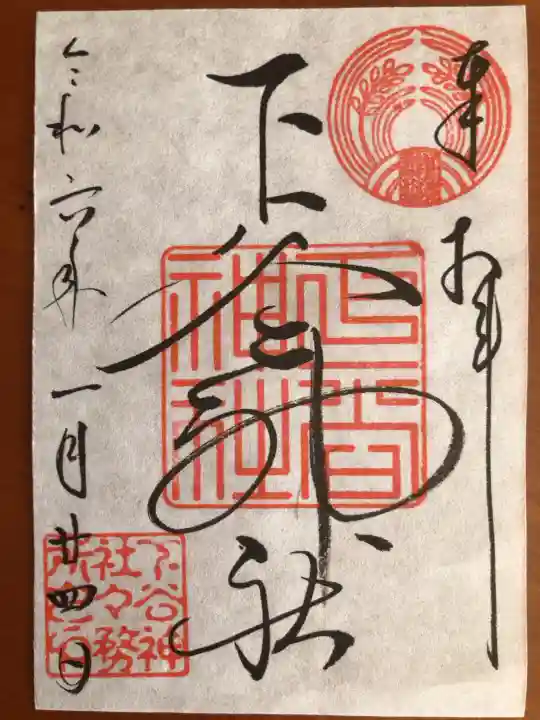 奉拝
下谷神社
下谷神社
令和六年一月廿四日
下谷神
社々務
所之印